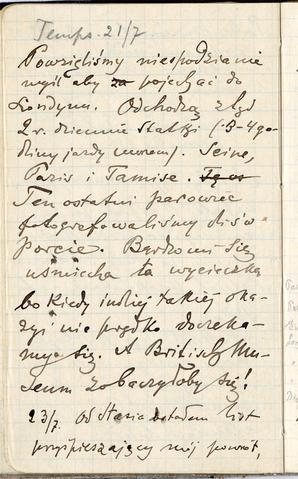 Temps. 21/7
Powzięliśmy niespodzianie
myśl aby za pojechać do
Londynu. Odchodzą ztąd
2 r. dziennie statki (3-4 go-
dziny jazdy morzem). Seine,
Paris i Tamise.
Ten ostatni parowiec
fotografowaliśmy dziś w
porcie. Bardzo mi się
uśmiecha ta wycieczka
bo kiedy indziej takiej oka-
zyi nie prędko docreka-
my się. A British Mu-
seum zobaczyłoby się!
23/7. Od Stasia dostałam list
przyśpieszający mój powrót,